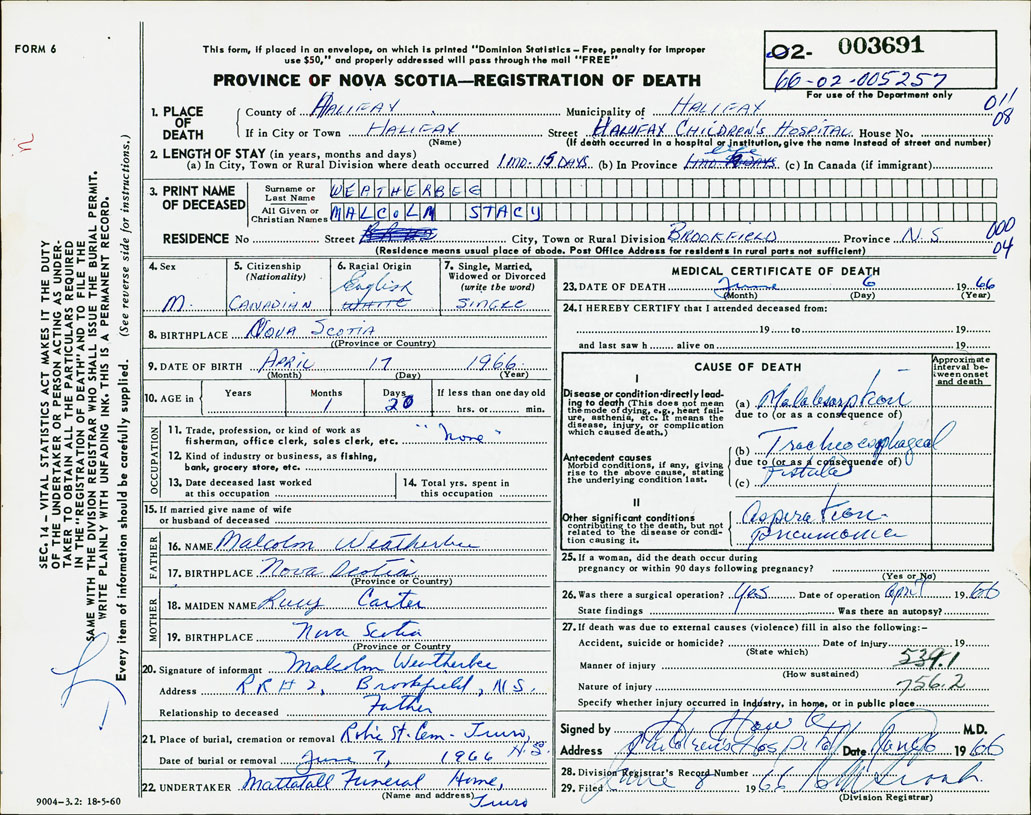 FORM 6
This form, if placed in an envelope, on which is printed "Dominion Statistics – Free, penalty for improper
use $50," and properly addressed will pass through the mail "FREE"
PROVINCE OF NOVA SCOTIA—REGISTRATION OF DEATH
02- 003691
66-02-005257
For use of the Department only
011
08
1. PLACE OF DEATH
County of HALIFAX Municipality of HALIFAX
If in City or Town HALIFAX Street HALIFAX CHILDREN'S HOSPITAL House No.
(Name) (If death occurred in a hospital or institution, give the name instead of street and number)
2. LENGTH OF STAY (in years, months and days)
(a) In City, Town or Rural Division where death occurred 1 MO. 15 DAYS (b) In Province life (c) In Canada (if immigrant)
3. PRINT NAME OF DECEASED
Surname or Last Name WEATHERBEE
All Given or Christian Names MALCOLM STACY
RESIDENCE No Street City, Town or Rural Division BROOKFIELD Province N.S
(Residence means usual place of abode. Post Office Address for residents in rural parts not sufficient)
000
04
4. Sex M.
5. Citizenship (Nationality) CANADIAN
6. Racial Origin English White
7. Single, Married, Widowed or Divorced (write the word) SINGLE
8. BIRTHPLACE NOVA SCOTIA
(Province or Country)
9. DATE OF BIRTH APRIL 17 1966
(Month) (Day) (Year)
10. AGE in Years Months 1 Days 20 If less than one day old hrs. or min.
OCCUPATION
11. Trade, profession, or kind of work as
fisherman, office clerk, sales clerk, etc. "None"
12. Kind of industry or business, as fishing,
bank, grocery store, etc.
13. Date deceased last worked
at this occupation
14. Total yrs. spent in
this occupation
15. If married give name of wife
or husband of deceased
FATHER
16. NAME Malcolm Weatherbee
17. BIRTHPLACE Nova Scotia
(Province or Country)
MOTHER
18. MAIDEN NAME Carter
19. BIRTHPLACE Nova Scotia
(Province or Country)
20. Signature of informant Malcolm Weatherbee
Address R.R # 2, Brookfield, N.S.
Relationship to deceased Father
21. Place of burial, cremation or removal Robie St. Cem - Truro, N.S.
Date of burial or removal June 7, 1966
22. UNDERTAKER Mattatall Funeral Home,
(Name and address) Truro
9004-3.2: 18-5-60
MEDICAL CERTIFICATE OF DEATH
23. DATE OF DEATH June 6 1966
(Month) (Day) (Year)
24. I HEREBY CERTIFY that I attended deceased from:
19 to 19
and last saw h alive on 19
CAUSE OF DEATH
Approximate interval between onset and death
I
Disease or condition directly leading to death (This does not mean
the mode of dying, e.g., heart failure, asthenia, etc. It means the
disease, injury, or complication
which caused death.)
(a) Malabsorption
due to (or as a consequence of)
Antecedent causes
Morbid conditions, if any, giving
rise to the above cause, stating
the underlying condition last.
(b) Tracheoesophageal
due to (or as a consequence of)
(c) Fistula
II
Other significant conditions
contributing to the death, but not
related to the disease or condition causing it.
Aspiration
pneumonia
25. If a woman, did the death occur during
pregnancy or within 90 days following pregnancy?
(Yes or No)
26. Was there a surgical operation? Yes Date of operation April 1966
State findings Was there an autopsy?
27. If death was due to external causes (violence) fill in also the following:-
Accident, suicide or homicide? Date of injury 19
(State which)
Manner of injury 539.1
(How sustained)
Nature of injury 756.2
Specify whether injury occurred in industry, in home, or in public place
Signed by M.D.
Address Childrens Hospital Date 1966
28. Division Registrar's Record Number
29. Filed June 8 1966
(Division Registrar)
SEC. 14 – VITAL STATISTICS ACT MAKES IT THE DUTY
OF THE UNDERTAKER OR PERSON ACTING AS UNDER-
TAKER TO OBTAIN ALL THE PARTICULARS REQUIRED
IN THE "REGISTRATION OF DEATH" AND TO FILE THE
SAME WITH THE DIVISION REGISTRAR WHO SHALL ISSUE THE BURIAL PERMIT.
WRITE PLAINLY WITH UNFADING INK. THIS IS A PERMANENT RECORD.
Every item of information should be carefully supplied. (See reverse side for instructions.)